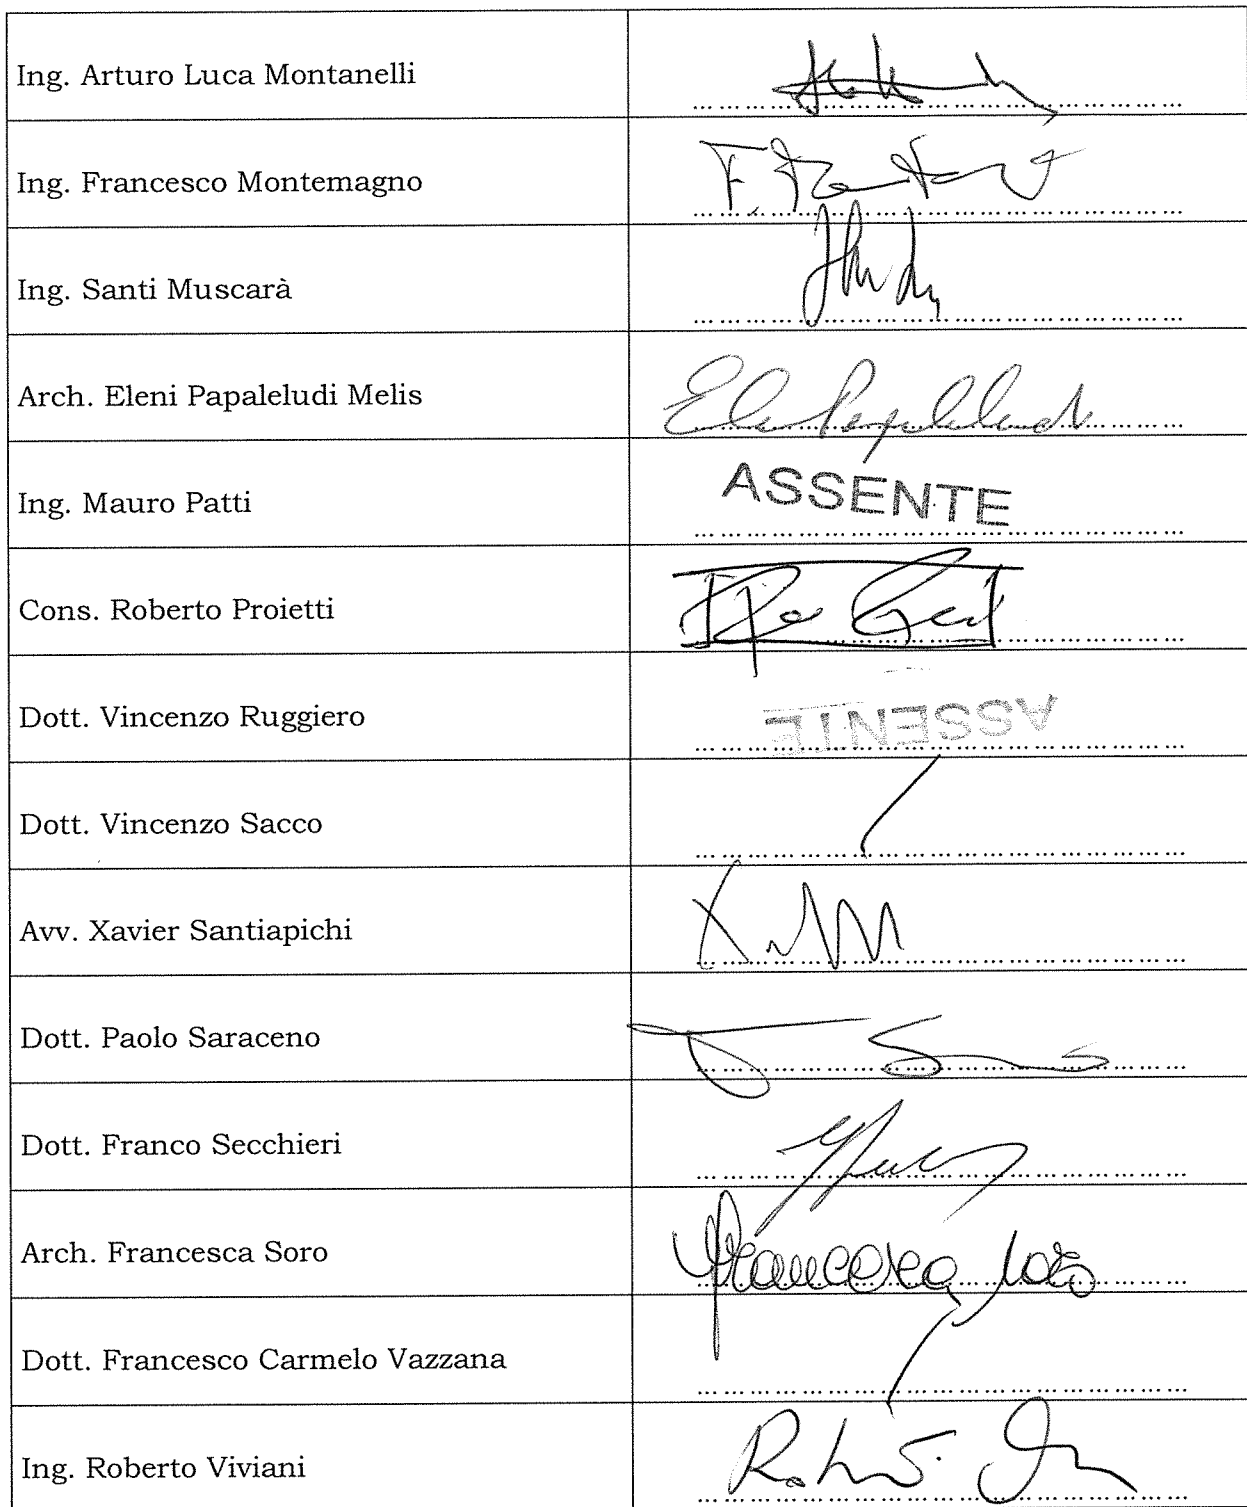 Ing. Arturo Luca Montanelli
Ing. Francesco Montemagno
Ing. Santi Muscarà
Arch. Eleni Papaleludi Melis
Ing. Mauro Patti
ASSENTE
Cons. Roberto Proietti
Dott. Vincenzo Ruggiero
ASSENTE
Dott. Vincenzo Sacco
Avv. Xavier Santiapichi
Dott. Paolo Saraceno
Dott. Franco Secchieri
Arch. Francesca Soro
Francesca Soro
Dott. Francesco Carmelo Vazzana
Ing. Roberto Viviani